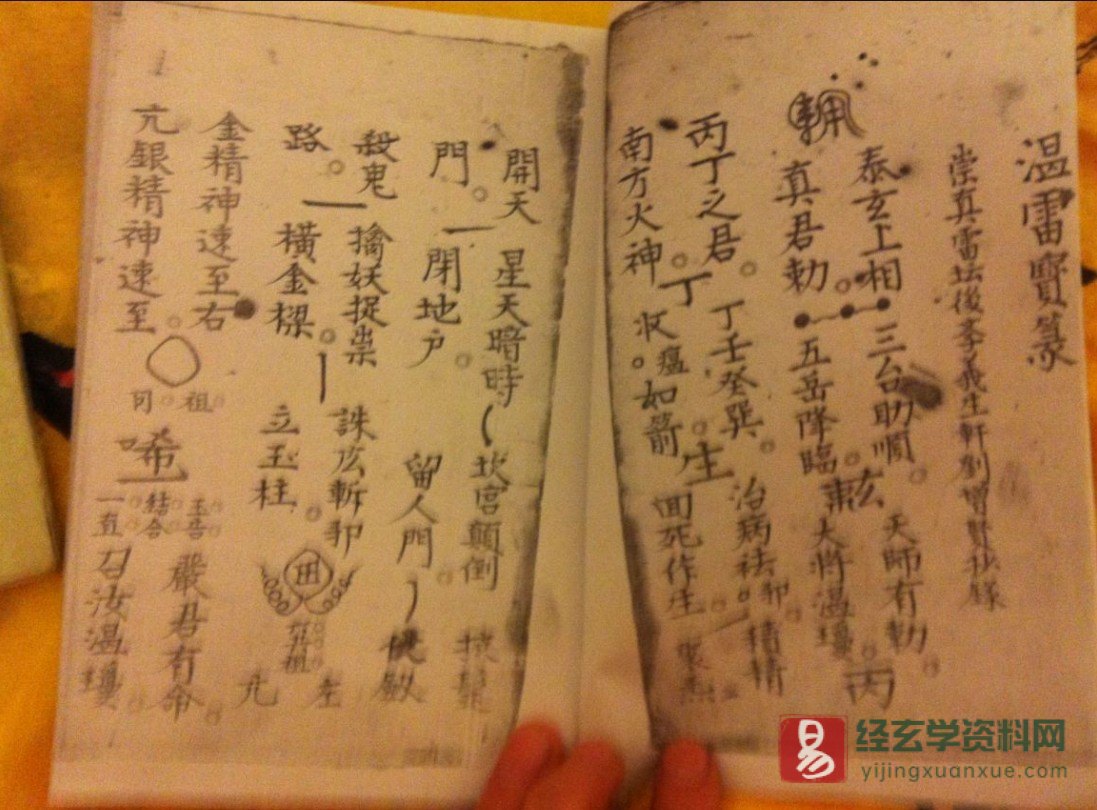 温雷寶篆
崇真雷坛後李義生軒劉增賢抄錄
泰玄上相 三台助順 天師有勅
真君勅 五岳降臨 大將溫瓊 丙
丙丁之君 丁壬癸巽 治病祛邪 精精
丁 生
南方火神 收瘟如箭 回死作生
開天 星天暗時 坎宮顛倒
門 閉地户 留人門
殺鬼 擒妖捉祟 誅広斬邪
路 橫金樑 立玉柱
左
田
金精神速至右
亢銀精神速至
祖
唏
結合
嚴君有命
召汝温瓊
易
经玄学资料网
yijingxuanxue.com